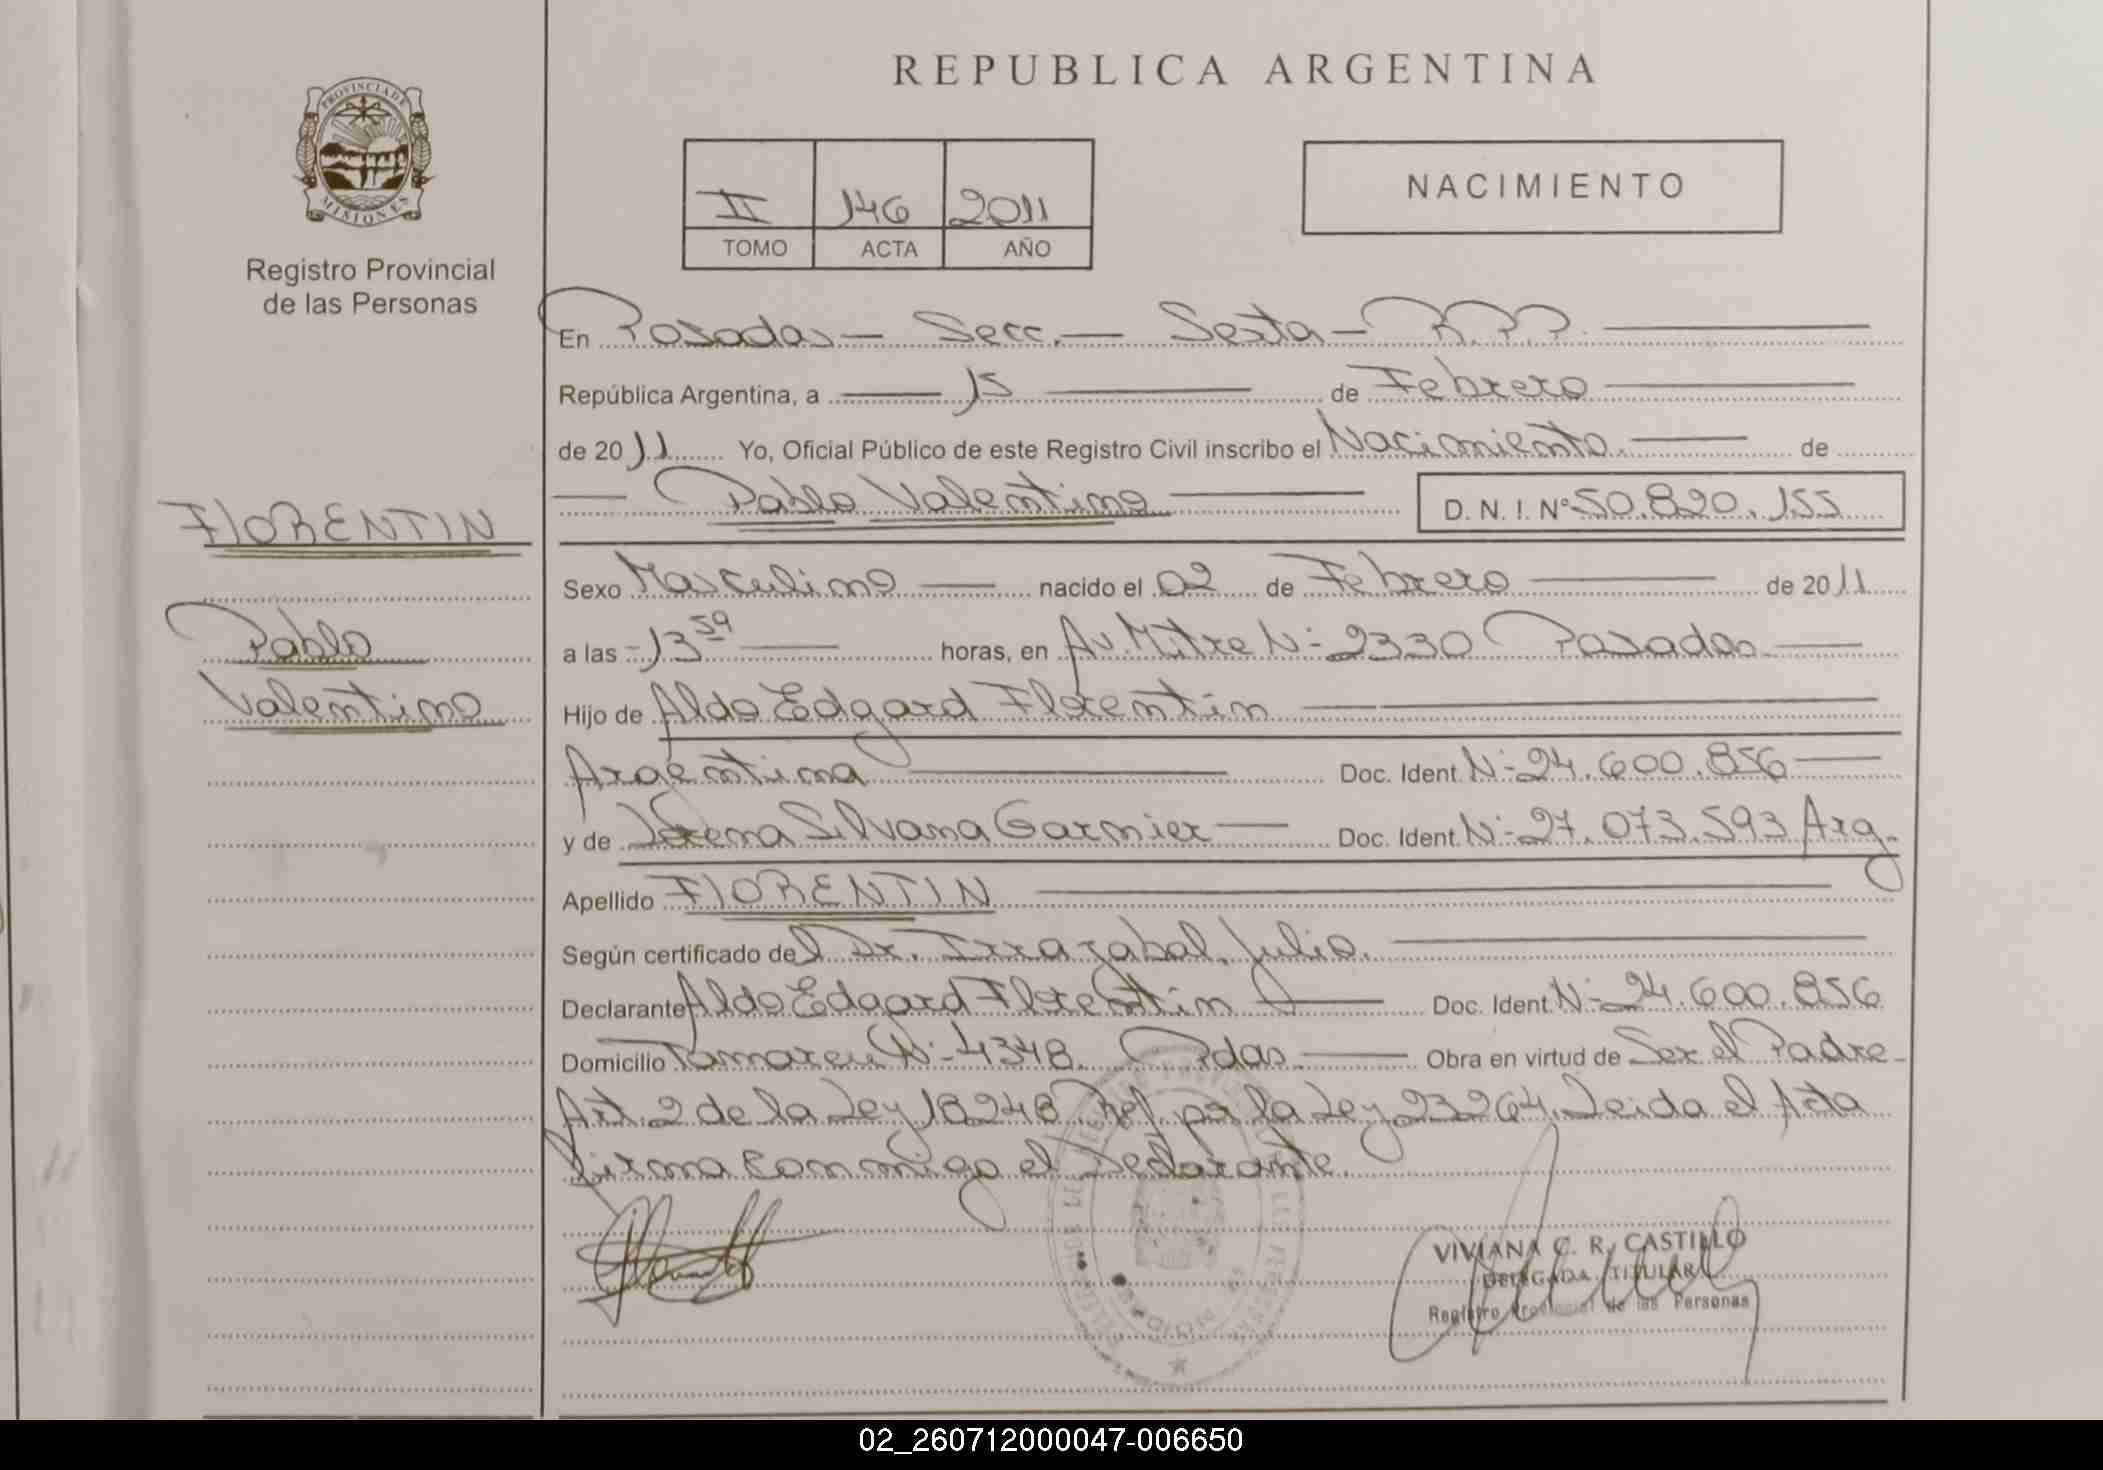 REPUBLICA ARGENTINA
PROVINCIA DE
MISIONES
Registro Provincial
de las Personas
II 146 2011
TOMO ACTA AÑO
NACIMIENTO
En Posadas - Secc. - Sexta - R.P.P.
República Argentina, a 15 de Febrero
de 2011 Yo, Oficial Público de este Registro Civil inscribo el Nacimiento. de
Pablo Valentino D. N. I. Nº 50.820.155
FLORENTIN
Pablo
Valentino
Sexo Masculino nacido el 02 de Febrero de 2011
a las 13 59 horas, en Av. Mitre Nº 2330 Posadas
Hijo de Aldo Edgard Florentin
Argentina Doc. Ident. Nº 24.600.856
y de Silvana Garnier Doc. Ident. Nº 27.073.593 Arg.
Apellido FLORENTIN
Según certificado del Dr. Irrazabal, Julio.
Declarante Aldo Edgard Florentin Doc. Ident. Nº 24.600.856
Domicilio Tamareu Nº 4348. Pdas. Obra en virtud de Ser el Padre
Art. 2 de la Ley 18248 Ref. por la Ley 23264. Leida el Acta
firma conmigo el Declarante.
VIVIANA C. R. CASTILLO
DELEGADA TITULAR
Registro Provincial de las Personas
02_260712000047-006650